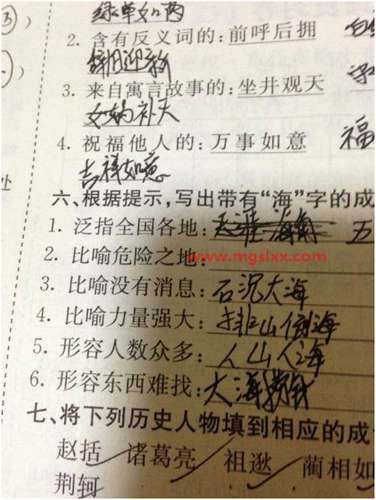 绿草如茵
2. 含有反义词的:前呼后拥
辞旧迎新
3. 来自寓言故事的:坐井观天
女娲补天
4. 祝福他人的:万事如意 福
吉祥如意
处
六、根据提示,写出带有“海”字的成
1. 泛指全国各地:天涯海角 五
2. 比喻危险之地:
www.mgslxx.com
3. 比喻没有消息:石沉大海
4. 比喻力量强大:排山倒海
5. 形容人数众多:人山人海
6. 形容东西难找:大海捞针
七、将下列历史人物填到相应的成
赵括 诸葛亮 祖逖 蔺相如
荆轲